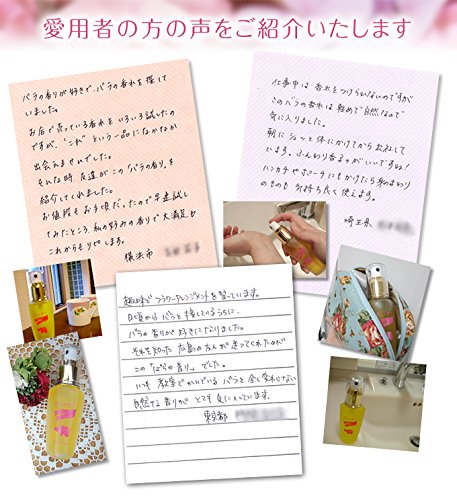 愛用者の方の声をご紹介いたします
バラの香りが好きで、バラの香水を探して
いました。
お店で売っている香水をいろいろ試したの
ですが、"これ"という一品になかなか
出会えませんでした。
そんな時、友達がこの「バラの香り」を
紹介してくれました。
お値段もお手頃だったので早速試し
てみたところ、私の好みの香りで大満足です
これからもリピします。
横浜市
仕事中は香水をつけられないのですが
このバラの香水は軽めで自然なので
気に入りました。
朝にシュッと体にかけてから出社して
います。ふんわり香るのがいいですね!
ハンカチやポーチにもかけたら身のまわり
のものも気持ち良く使えます。
埼玉県
趣味でフラワーアレンジメントを習っています。
日頃からバラと接しているうちに、
バラの香りが好きになりました。
それを知った広島の友人が送ってくれたのが
この「ばらの香り」でした。
いつも教室でかいでいるバラと全く変わらない
自然な香りがとても気に入っています。
東京都